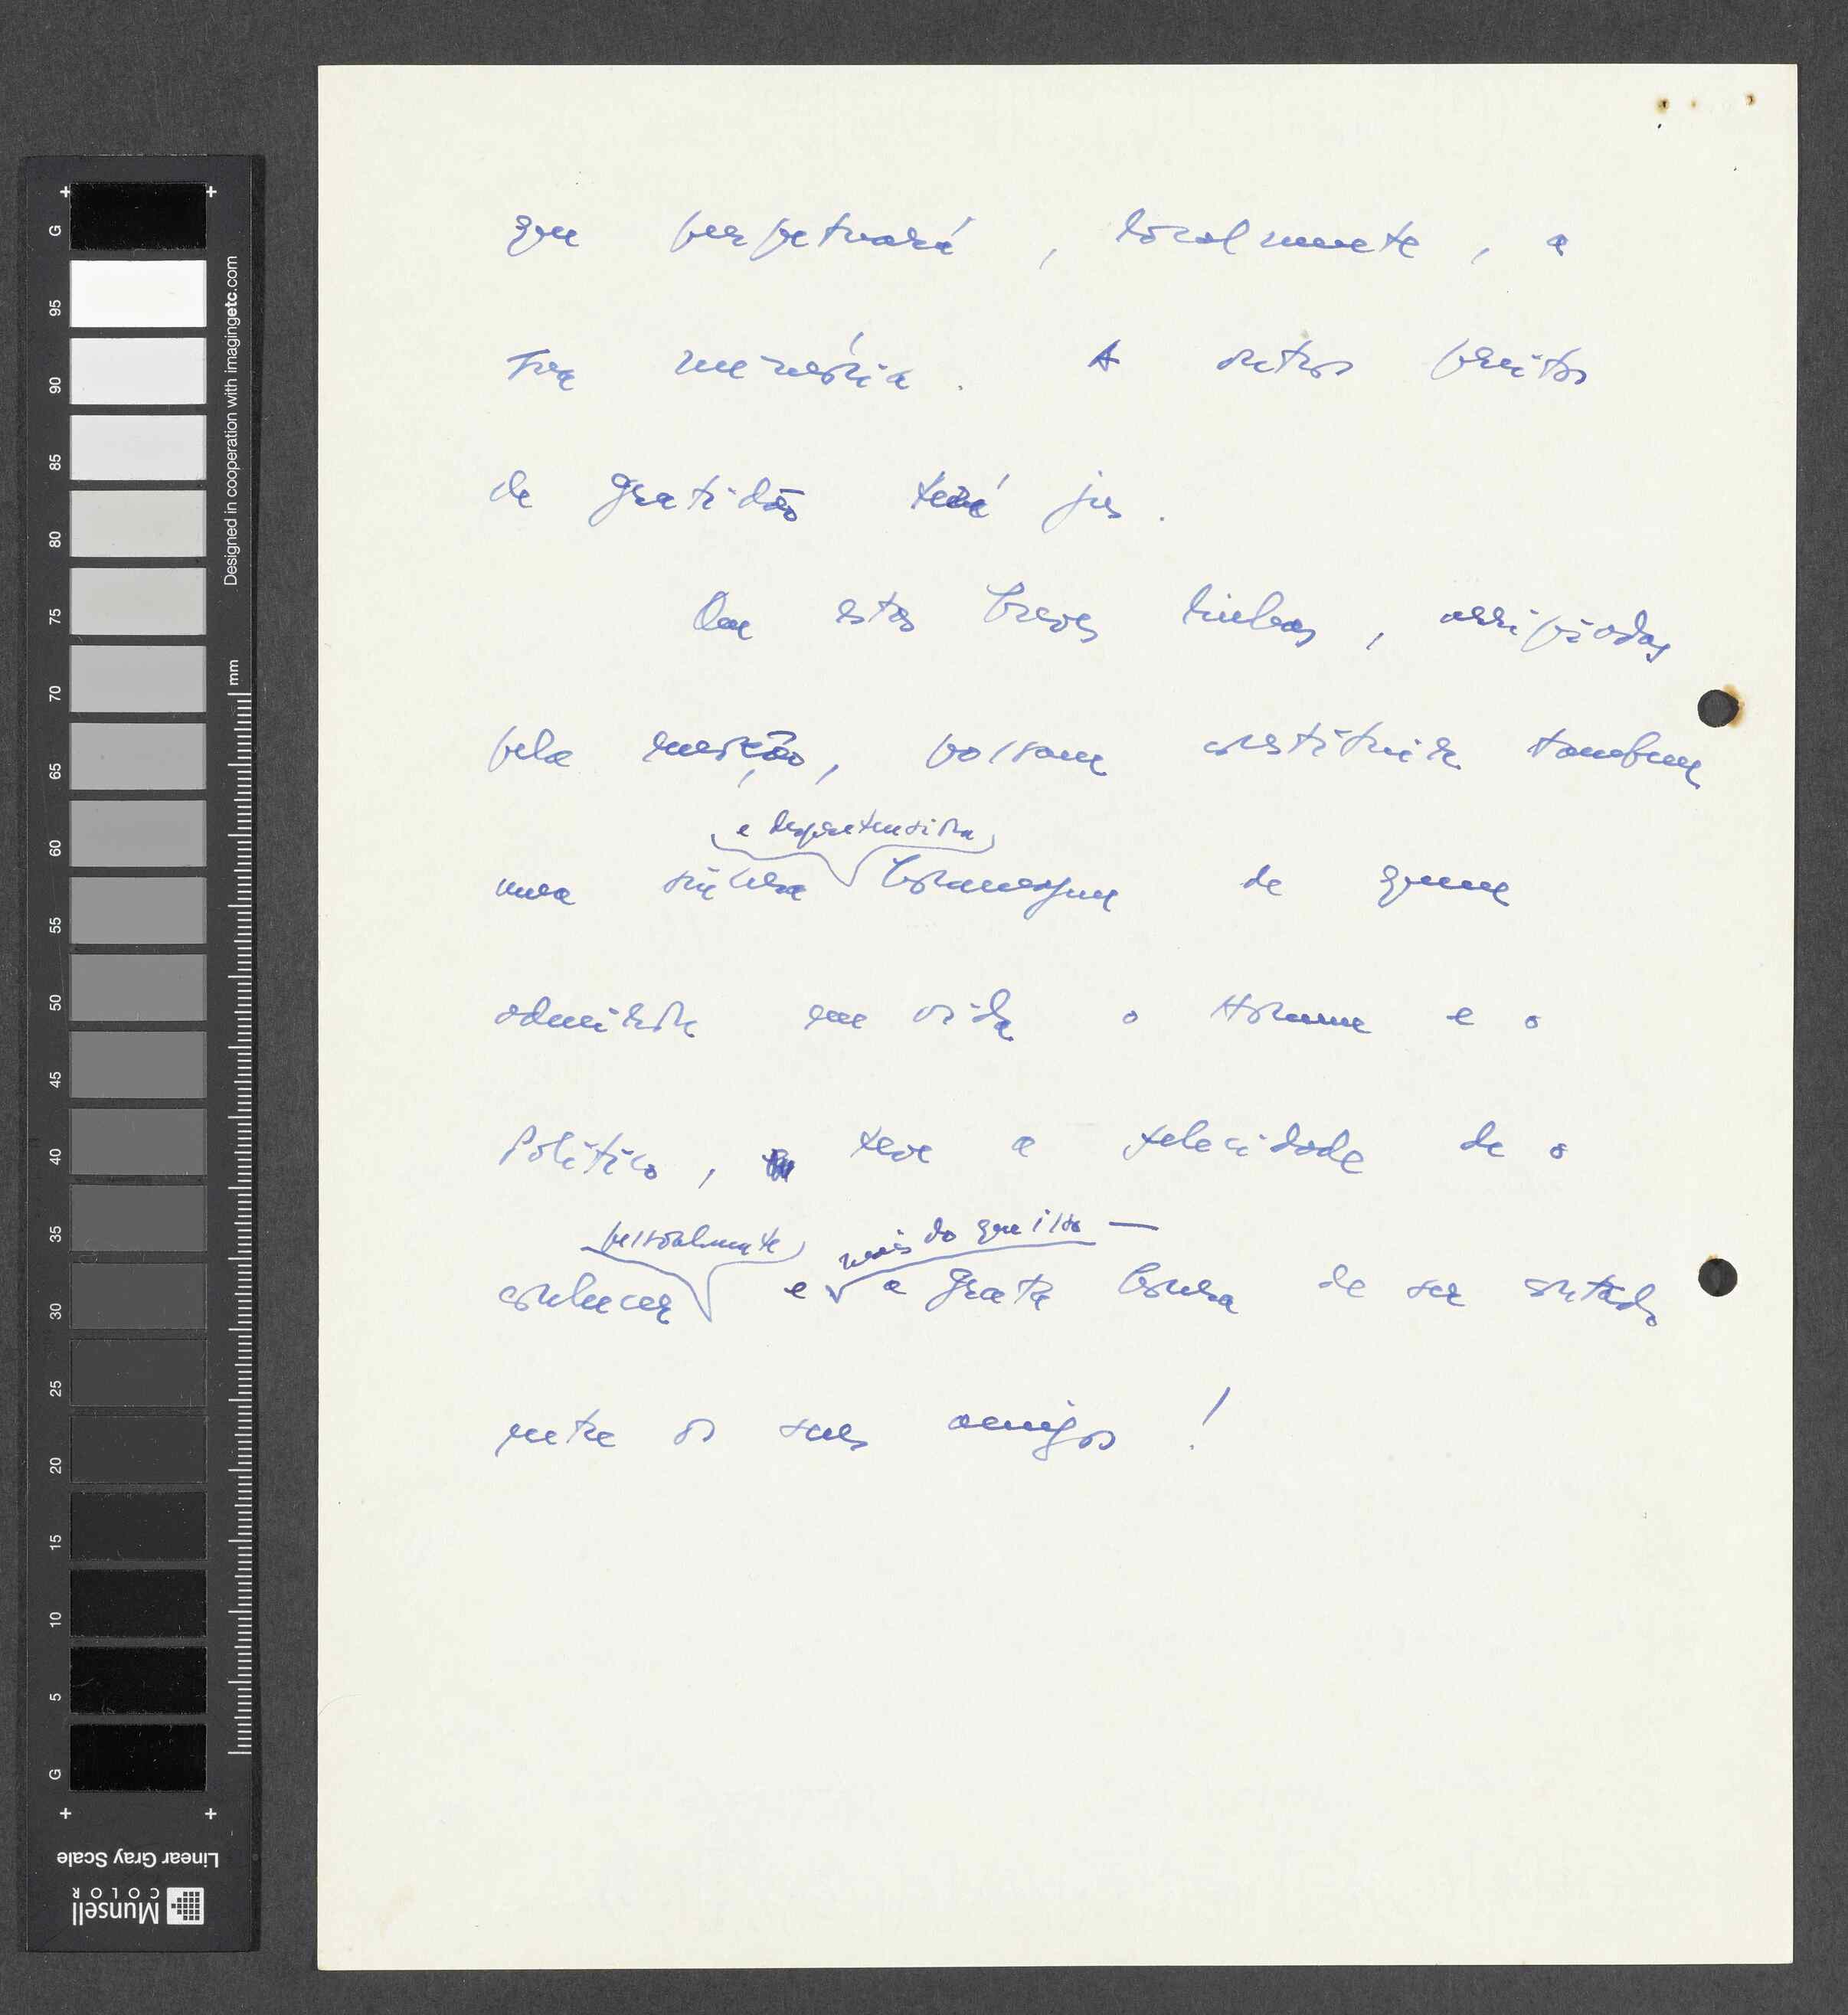 que perpetuará, localmente, a
sua memória. A outros preitos
de gratidão terá jus.
Que estas breves linhas, arripiadas
pela emoção, possam constituir tambem
e despretensiosa
uma singela homenagem de quem
admirou em vida o Homem e o
Político, teve a felicidade de o
pessoalmente mais do que isso —
conhecer e a grata honra de ser contado
entre os seus amigos!
G 95 90 85 80 75 70 65 60 55 50 45 40 35 30 25 20 15 10 5 G
Designed in cooperation with imagingetc.com
mm
Linear Gray Scale
Munsell
COLOR